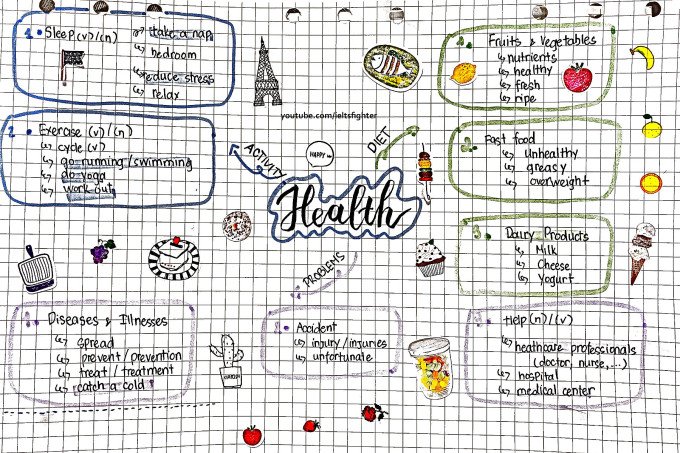 1. Sleep (v)/(n)
take a nap
bedroom
reduce stress
relax
2. Exercise (v)/(n)
cycle (v)
go running/swimming
do yoga
work out
ACTIVITY
youtube.com/ieltsfighter
HAPPY
DIET
Health
PROBLEMS
1. Fruits & Vegetables
nutrients
healthy
fresh
ripe
2. Fast food
unhealthy
greasy
overweight
3. Dairy Products
Milk
Cheese
Yogurt
1. Diseases & Illnesses
spread
prevent/prevention
treat/treatment
catch a cold
2. Accident
injury/injuries
unfortunate
3. Help (n)/(v)
heathcare professionals
(doctor, nurse,...)
hospital
medical center